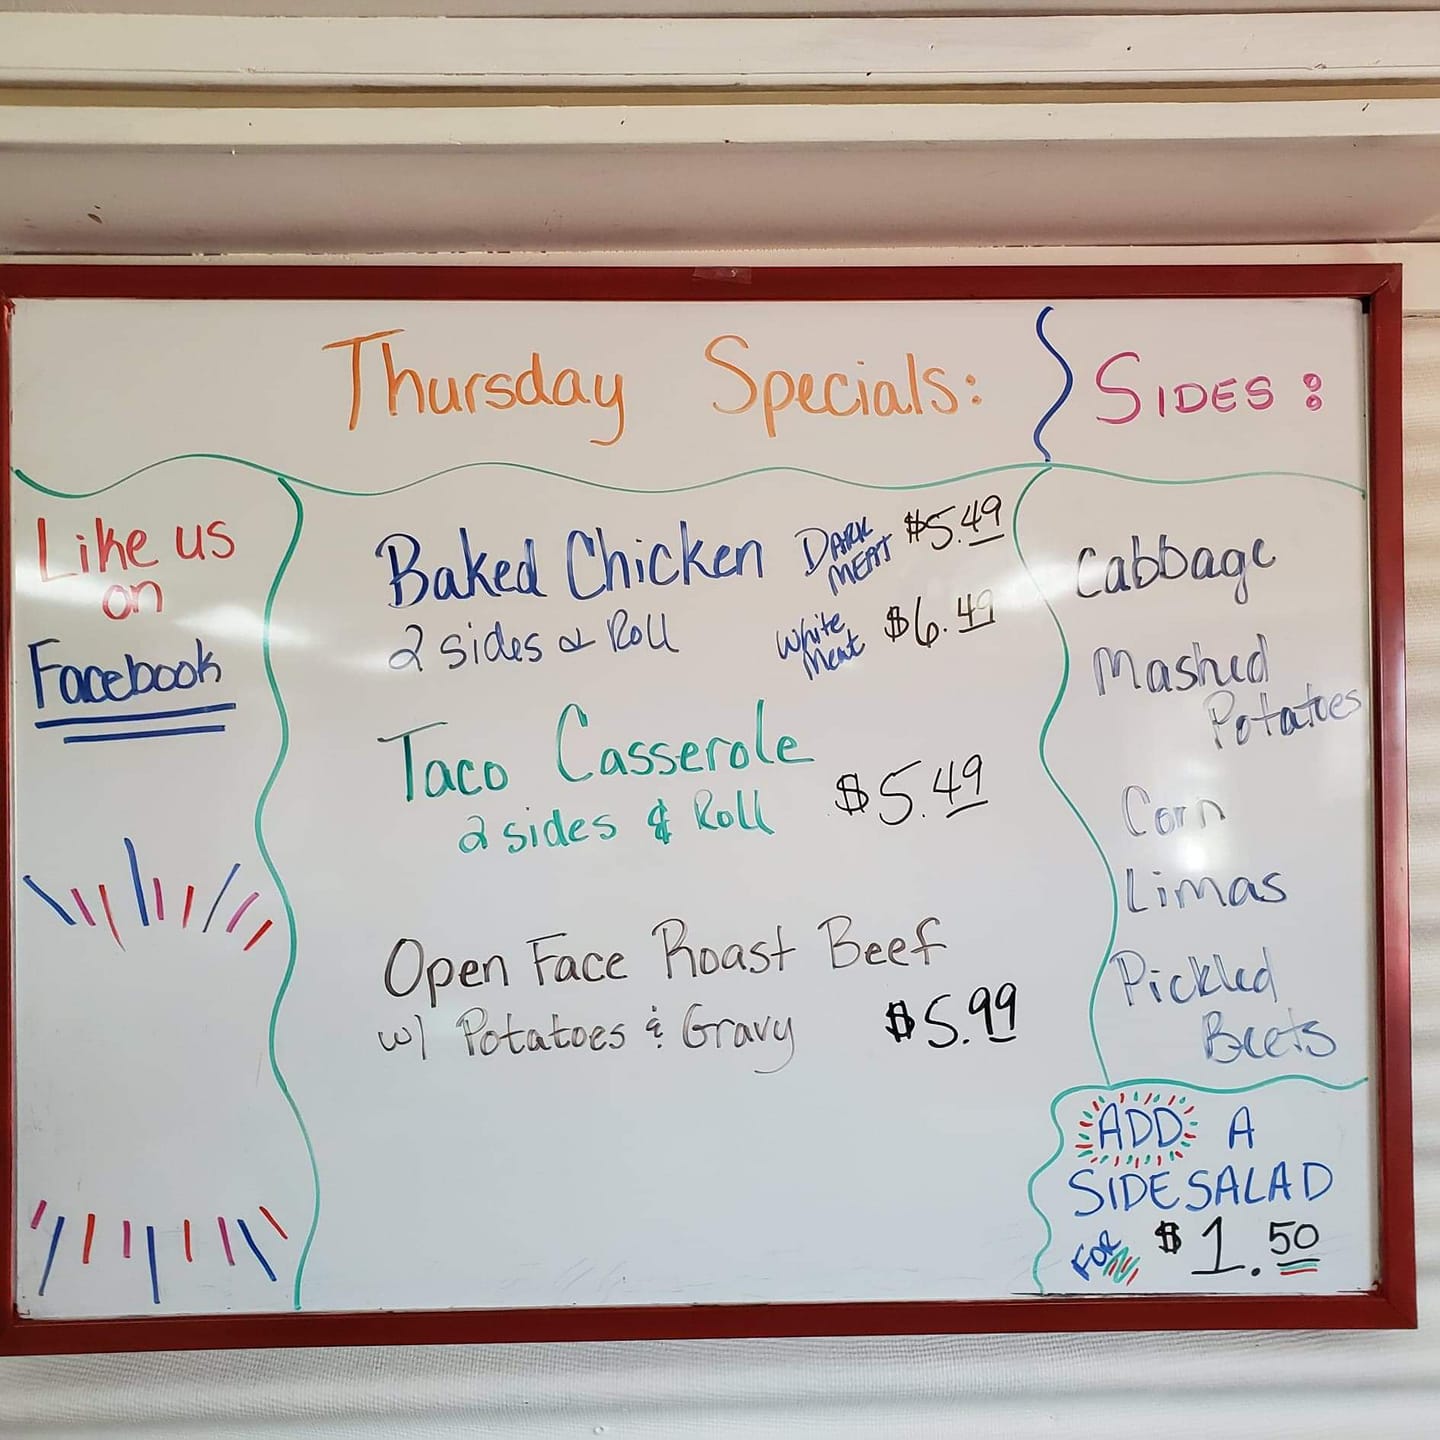 Thursday Specials:
SIDES:
Like us
on
Facebook
Baked Chicken
2 sides & Roll
DARK
MEAT
$5.49
White
Meat
$6.49
Taco Casserole
2 sides & Roll
$5.49
Open Face Roast Beef
w/ Potatoes & Gravy
$5.99
Cabbage
Mashed
Potatoes
Corn
Limas
Pickled
Beets
ADD A
SIDE SALAD
FOR $1.50